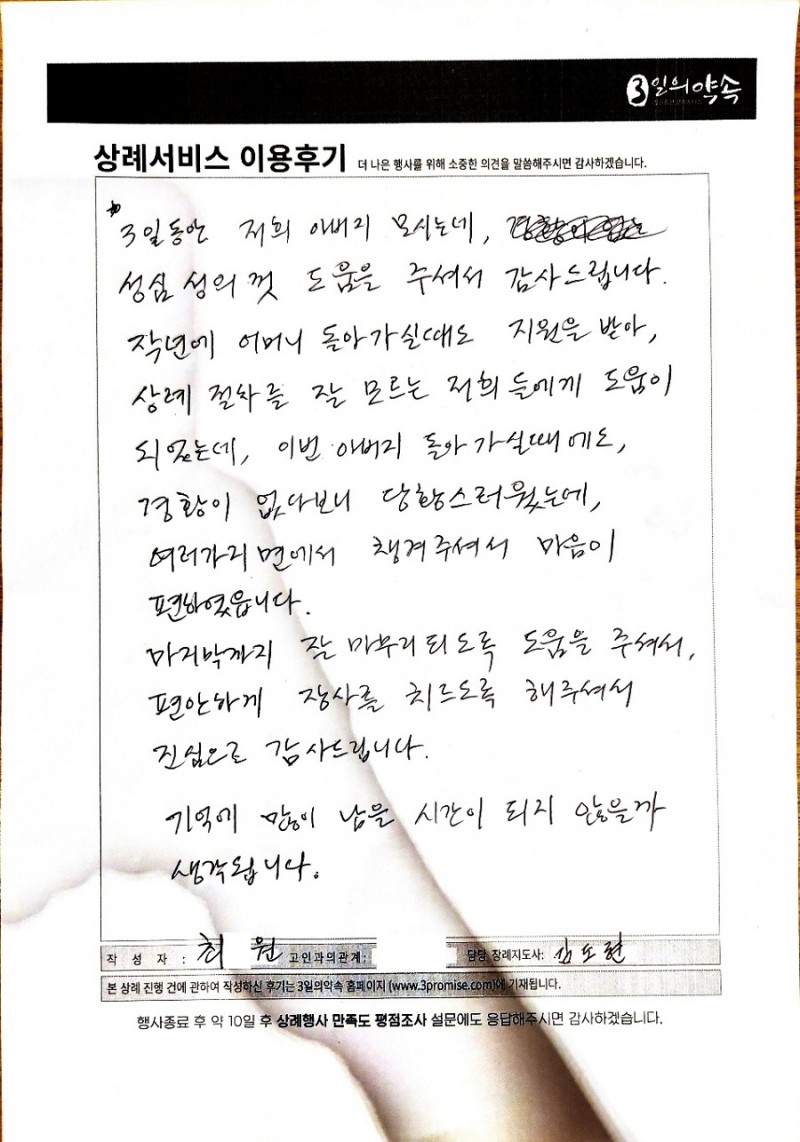 3일의약속
상례서비스 이용후기 더 나은 행사를 위해 소중한 의견을 말씀해주시면 감사하겠습니다.
3일동안 저희 아버지 모시는데,
성심 성의 껏 도움을 주셔서 감사드립니다.
작년에 어머니 돌아가실때도 지원을 받아,
상례 절차를 잘 모르는 저희들에게 도움이
되었는데, 이번 아버지 돌아가실때에도,
경황이 없다보니 당황스러웠는데,
여러가지 면에서 챙겨주셔서 마음이
편하였읍니다.
마지막까지 잘 마무리되도록 도움을 주셔서,
편안하게 장사를 치르도록 해주셔서
진심으로 감사드립니다.
기억에 많이 남을 시간이 되지 않을까
생각됩니다.
작 성 자 : 최 원 고인과의관계: 담당 장례지도사: 김도현
본 상례 진행 건에 관하여 작성하신 후기는 3일의약속 홈페이지 (www.3promise.com)에 기재됩니다.
행사종료 후 약 10일 후 상례행사 만족도 평점조사 설문에도 응답해주시면 감사하겠습니다.